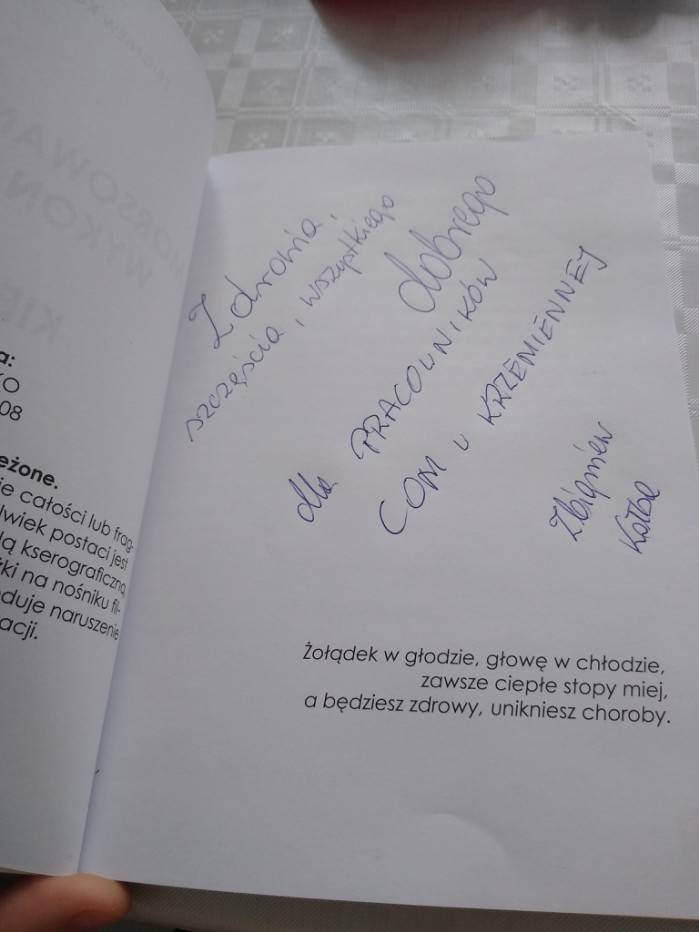 MORSOWAN
WYKON
KIE
a:
KO
08
eżone.
ie całości lub frag-
lwiek postaci jest
dą kserograficzną,
ki na nośniku fil-
oduje naruszenie
acji.
Zdrowia,
szczęścia, wszystkiego
dobrego
dla PRACOWNIKÓW
COM u KRZEMIENNEJ
Zbigniew
Żołądek w głodzie, głowę w chłodzie,
zawsze ciepłe stopy miej,
a będziesz zdrowy, unikniesz choroby.